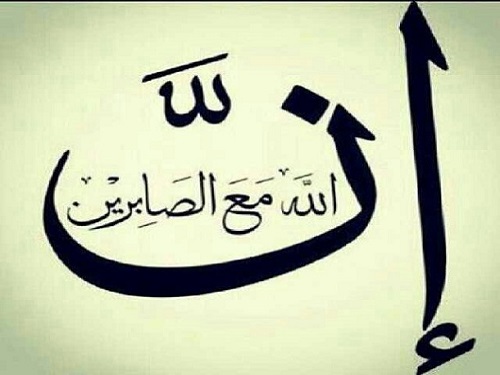 إنّ
الله مَعَ الصَابِرين